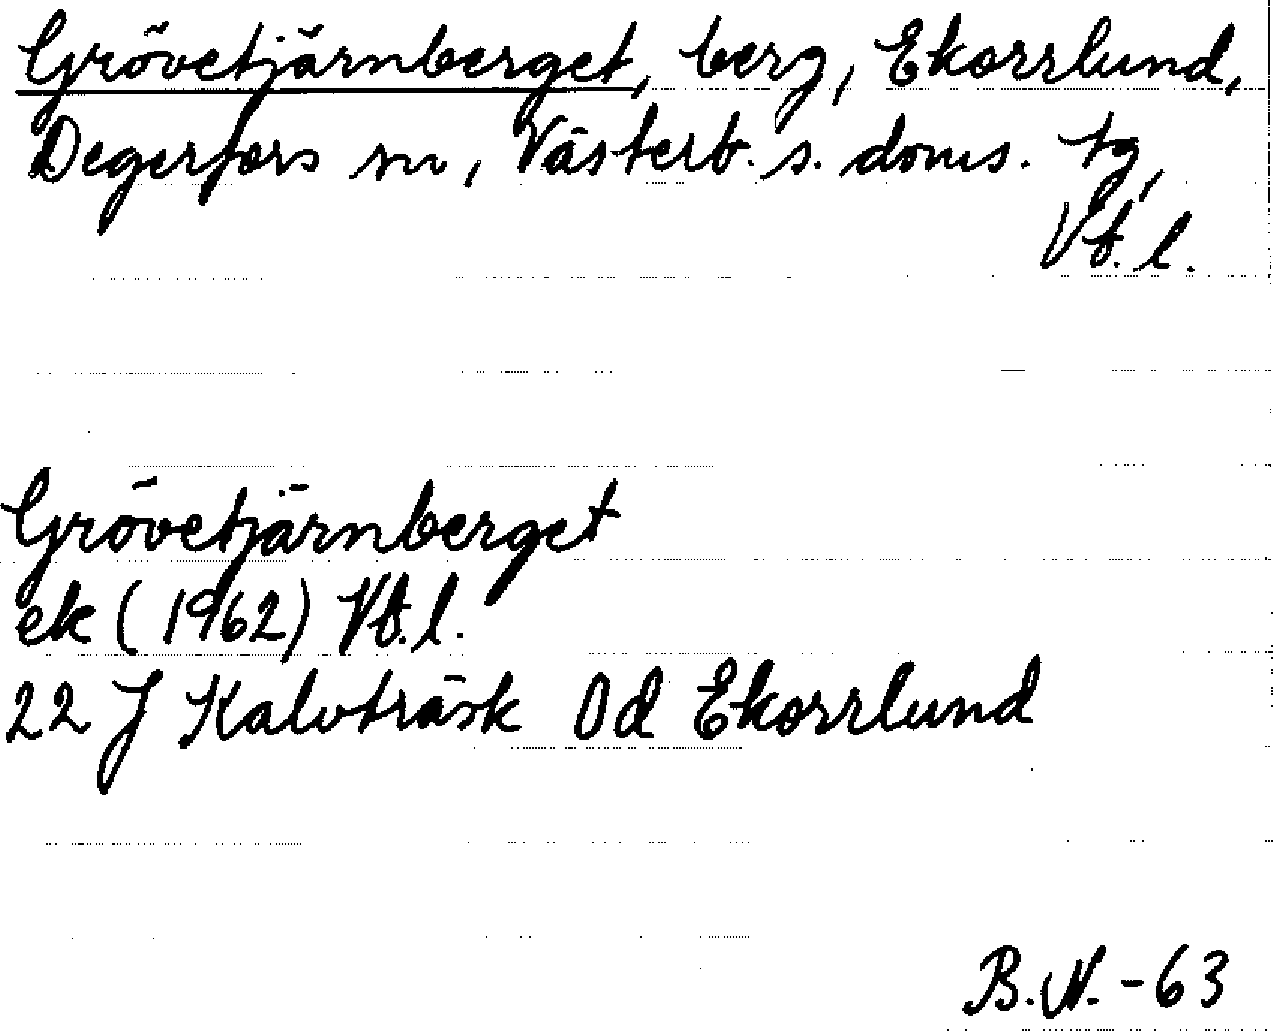 Grövetjärnberget, berg, Ekorrlund,
Degerfors sn, Västerb. s. doms. tg,
Vb. l.
Grövetjärnberget
ek (1962) Vb. l.
22 J Kalvträsk 0d Ekorrlund
B.N. -63